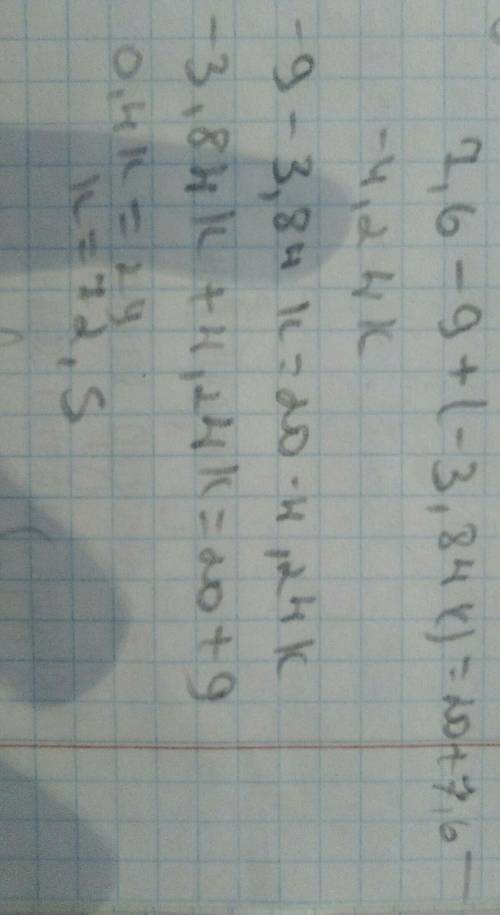 7,6 - 9 + (-3,84k) = 20 + 7,6 -
-4,24k
-9 - 3,84k = 20 - 4,24k
-3,84k + 4,24k = 20 + 9
0,4k = 29
k = 72,5